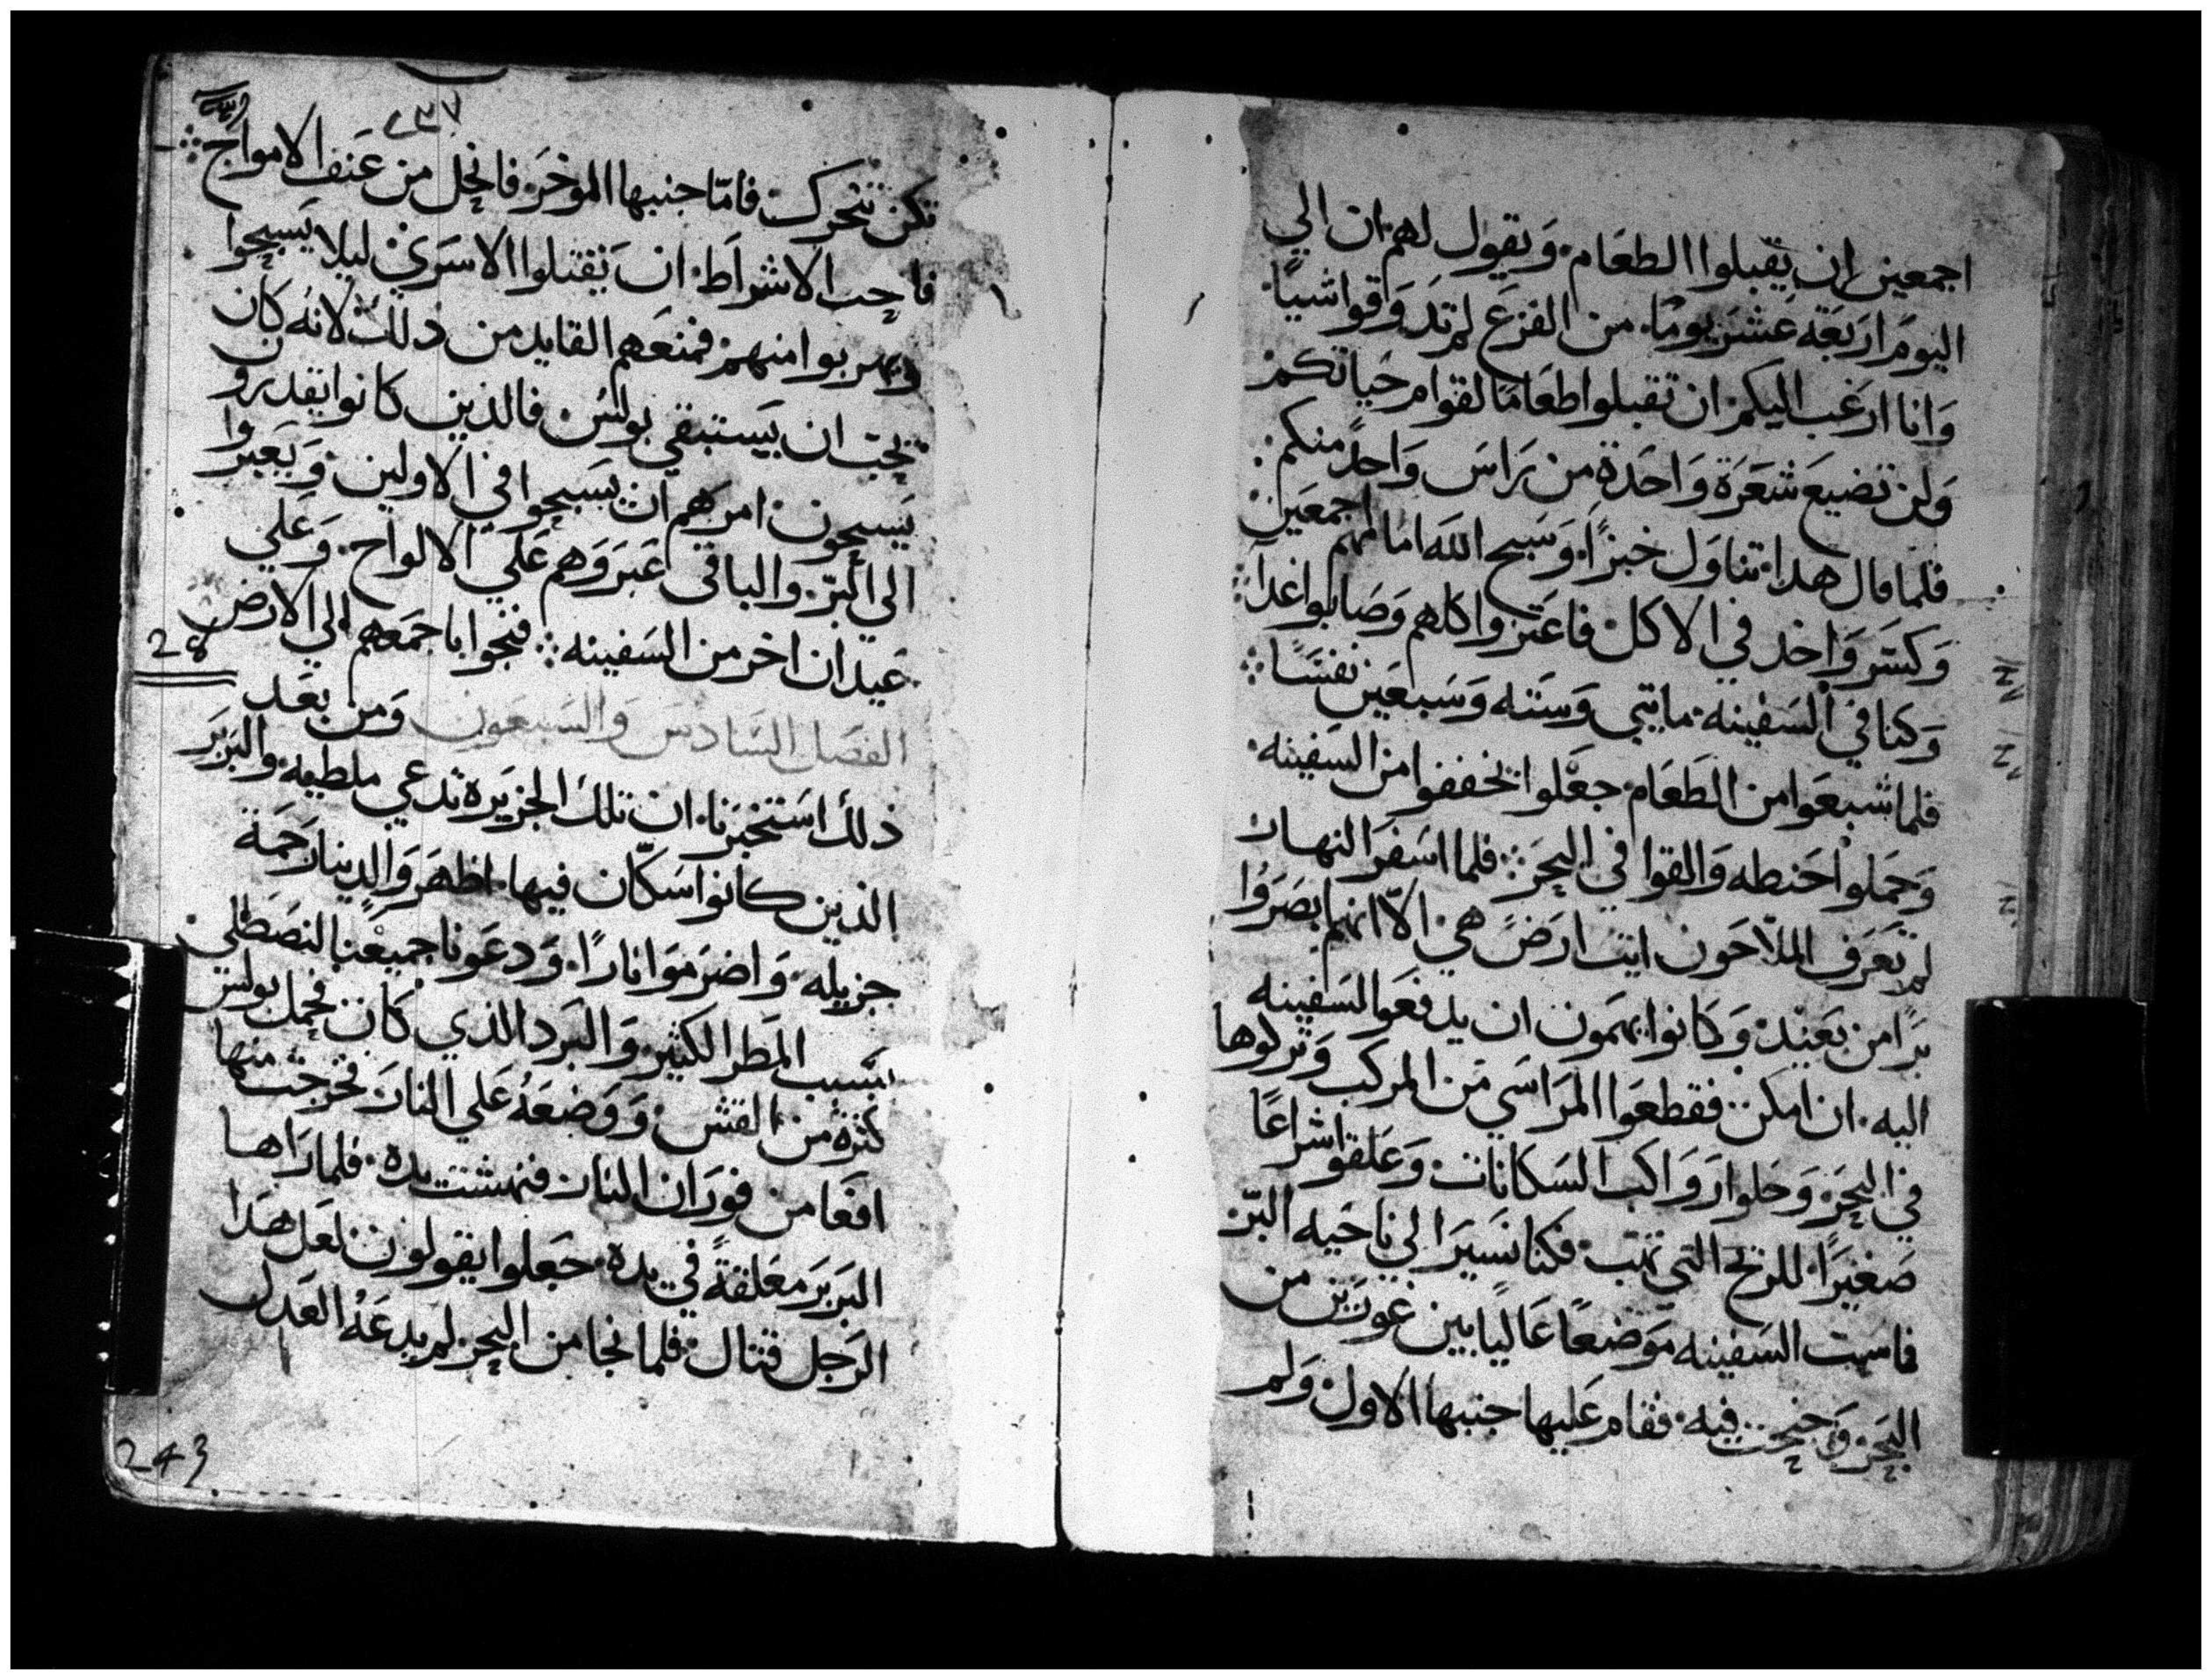 اجمعين ان يقبلوا الطعام. ويقول لهم. ان الي
اليوم اربعة عشر يومًا. من الفزع لم تدوقوا شيًا.
وانا ارغب اليكم ان تقبلوا طعامًا لقوام حياتكم
ولن تضيع شعرة واحدة من راس واحد منكم.
فلما قال هدا. تناول خبزًا. وسبح الله امامهم اجمعين
وكسر واخد في الاكل. فاعتزوا كلهم وصابوا غدا
وكنا في السفينه. مايتي وسته وسبعين نفسًا
فلما شبعوا من الطعام. جعلوا يخففوا من السفينه.
وحملوا حنطه والقوا في البحر. فلما اسفر النهار
لم يعرف الملاحون ايت ارض هي. الا انهم ابصروا
برًا من بعيد. وكانوا يهمون ان يدفعوا السفينه
اليه. ان امكن. فقطعوا المراسي من المركب وتركوها
في البحر. وحلوا رواكب السكانات. وعلقوا شراعًا
صغيرًا. للريح التي تهب. فكنا نسير الي ناحيه البر
فماست السفينه موضعًا عاليًا بين غورين من
البحر وجنحت فيه. فقام عليها جنبها الاول. ولم
٢٣٧
تكن تتحرك. فامّا جنبها الموخر. فانحل من عنف الامواج
فاحب الاشراط. ان يقتلوا الاسري ليلا يسبحوا
ويهربوا منهم. فمنعهم القايد من دلك لانه كان
يحب ان يستبقي بولس. فالذين كانوا يقدرو
يسبحون. امرهم ان يسبحوا في الاولين. ويعبروا
الي البر. والباقي اعبروهم علي الالواح. وعلي
عيدان اخر من السفينه. فنجوا باجمعهم الي الارض
28
الفصل السادس والسبعون ومن بعد
ذلك استخبرنا. ان تلك الجزيرة تدعي ملطيه. والبربر
الذين كانوا سكّان فيها. اظهروا لدينا رحمة
جزيله. واضرموا نارًا. ودعونا جميعنا لنصطلي.
بسبب المطر الكثير. والبرد الذي كان. فحمل بولس
كثره من القش. ووضعه علي النار. فخرجت منها
افعا من فوران النار. فنهشت يده. فلما راها
البربر معلقةً في يده. جعلوا يقولون لعل هدا
الرجل قتال. فلما نجا من البحر لم يدعه العدل
243